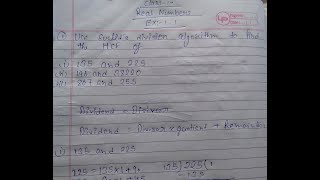 Real Numbers
Ex-1.1
① Use Euclid's division algorithm to find
the HCF of
(i) 135 and 225
(ii) 196 and 38220
(iii) 867 and 255
Dividend = Divisor
Dividend = Divisor x quotient + Remainder
(i) 135 and 225
225 = 135 x 1 + 90
135) 225 (1